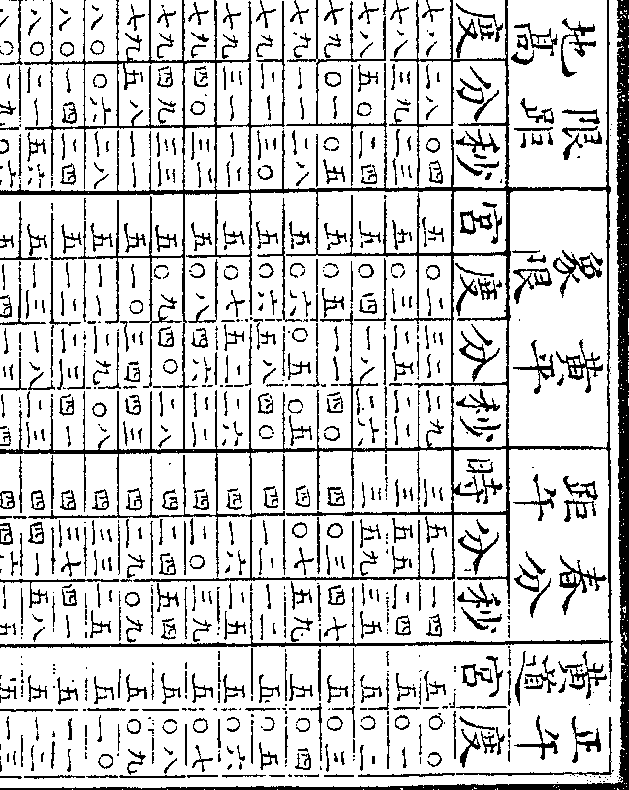 限距地高 黃平象限 春分距午 正午黃道
度 分 秒 宮 度 分 秒 時 分 秒 宮 度
七八 二八 〇四 五 〇二 三二 二九 三 五一 一四 五 〇〇
七八 三九 二三 五 〇三 二五 二二 三 五五 二四 五 〇一
七八 五〇 二四 五 〇四 一八 二六 三 五九 三五 五 〇二
七九 〇一 〇五 五 〇五 一一 四〇 四 〇三 四七 五 〇三
七九 一一 二八 五 〇六 〇五 〇五 四 〇七 五九 五 〇四
七九 二一 三〇 五 〇六 五八 四〇 四 一二 一二 五 〇五
七九 三一 一二 五 〇七 五二 二六 四 一六 二五 五 〇六
七九 四〇 三二 五 〇八 四六 二二 四 二〇 三九 五 〇七
七九 四九 三三 五 〇九 四〇 二八 四 二四 五四 五 〇八
七九 五八 一一 五 一〇 三四 四三 四 二九 〇九 五 〇九
八〇 〇六 二八 五 一一 二九 〇八 四 三三 二五 五 一〇
八〇 一四 二四 五 一二 二三 四一 四 三七 四一 五 一一
八〇 二一 五六 五 一三 一八 二三 四 四一 五八 五 一二